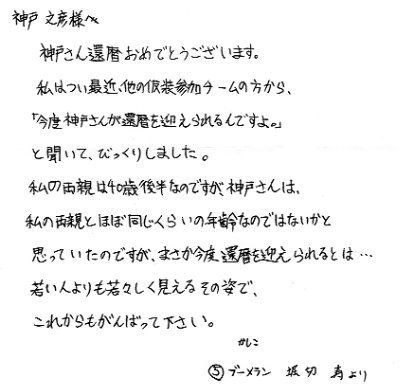 神戸 文彦様へ
神戸さん還暦おめでとうございます。
私はつい最近、他の仮装参加チームの方から、
「今度神戸さんが還暦を迎えられるんですよ。」
と聞いて、びっくりしました。
私の両親は40歳後半なのですが、神戸さんは、
私の両親とほぼ同じくらいの年齢なのではないかと
思っていたのですが、まさか今度還暦を迎えられるとは…
若い人よりも若々しく見えるその姿で、
これからもがんばって下さい。
かしこ
⑤ブーメラン 堀切 寿より